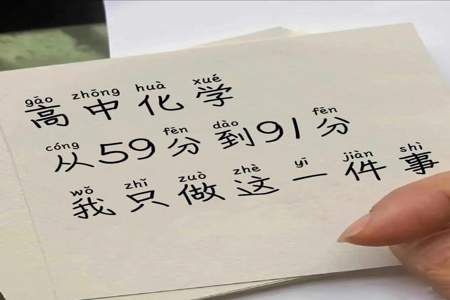 gāo zhōng huà xué
高中化学
cóng fēn dào fēn
从59分到91分
wǒ zhǐ zuò zhè yī jiàn shì
我只做这一件事